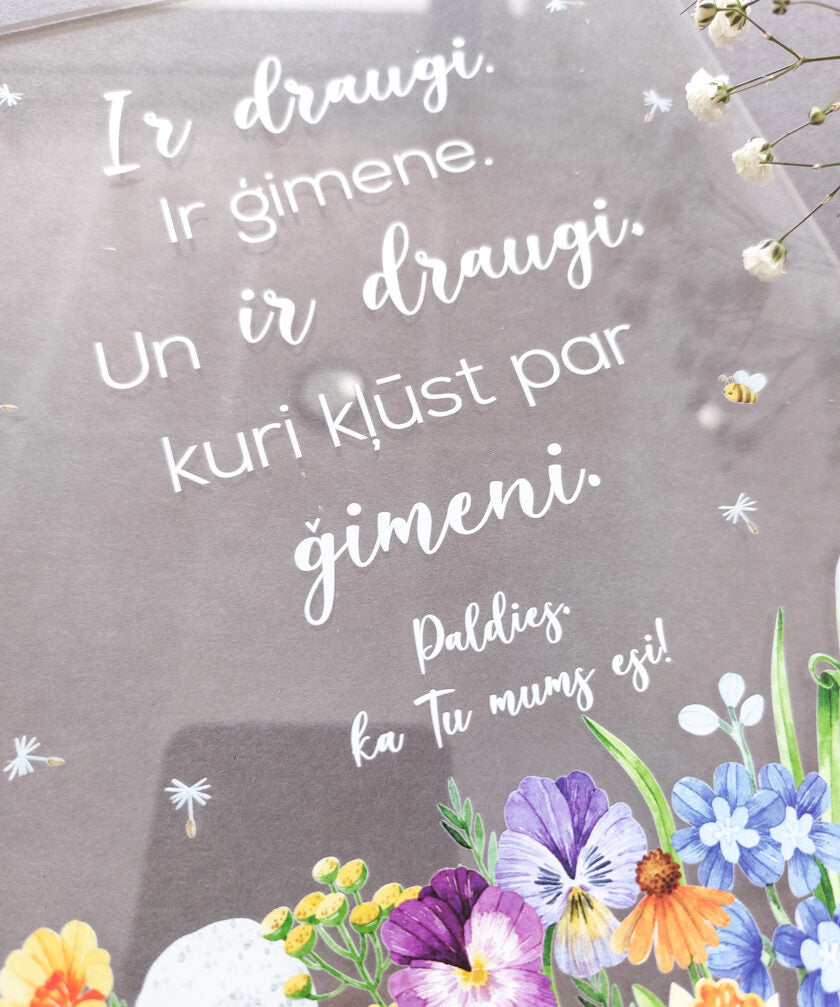 Ir draugi.
Ir ģimene.
Un ir draugi,
kuri kļūst par
ģimeni.
Paldies,
ka Tu mums esi!